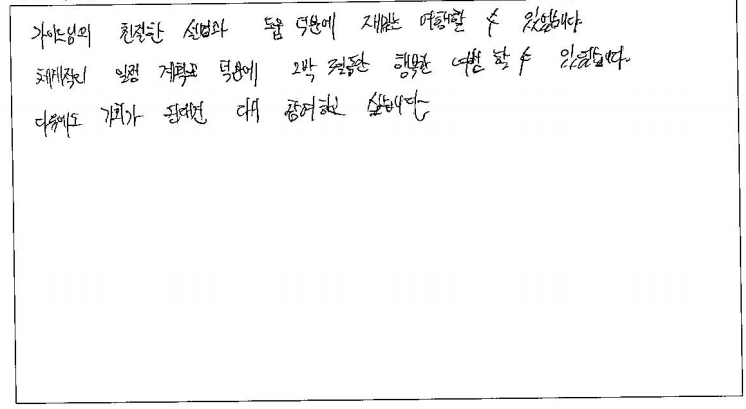 가이드님의 친절한 설명과 도움 덕분에 재밌는 여행할 수 있었습니다
체계적인 일정 계획도 덕분에 2박 3일동안 행복한 여행 할 수 있었습니다.
다음에도 기회가 된다면 다시 참여하고 싶습니다~